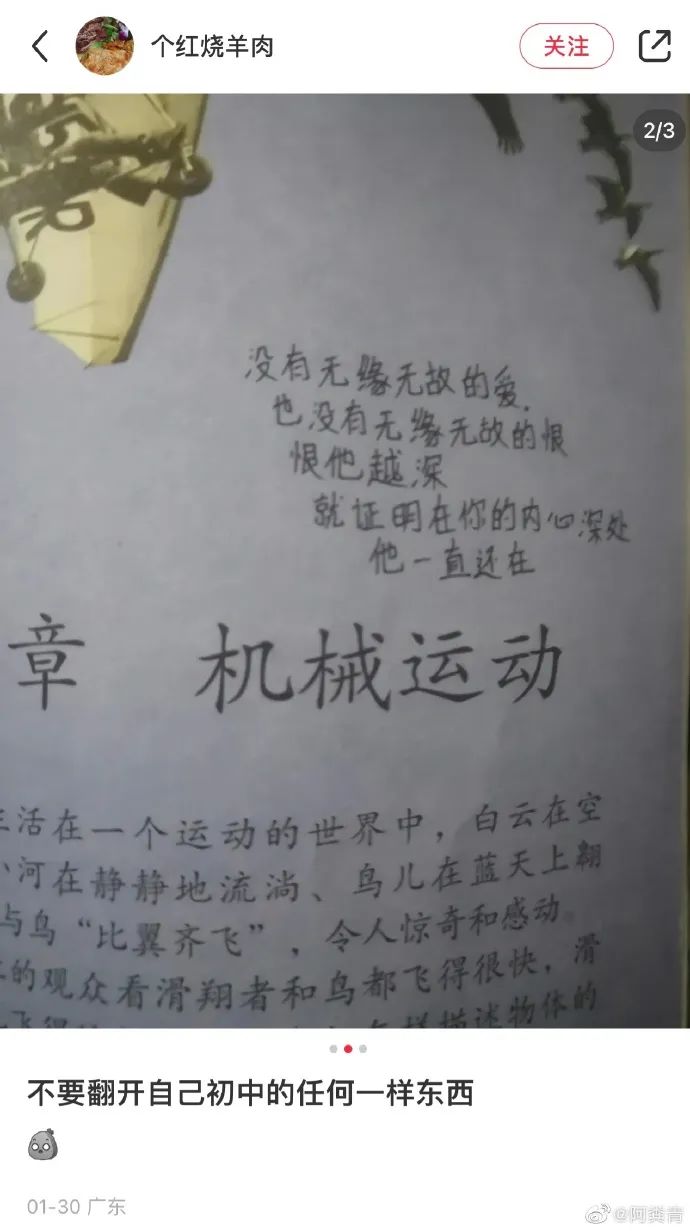 个红烧羊肉
关注
2/3
没有无缘无故的爱,
也没有无缘无故的恨
恨他越深
就证明在你的内心深处
他一直还在
章 机械运动
活在一个运动的世界中，白云在空
小河在静静地流淌、鸟儿在蓝天上翱
与鸟“比翼齐飞”，令人惊奇和感动。
的观众看滑翔者和鸟都飞得很快，滑
样描述物体的
不要翻开自己初中的任何一样东西
01-30 广东
@阿粪青